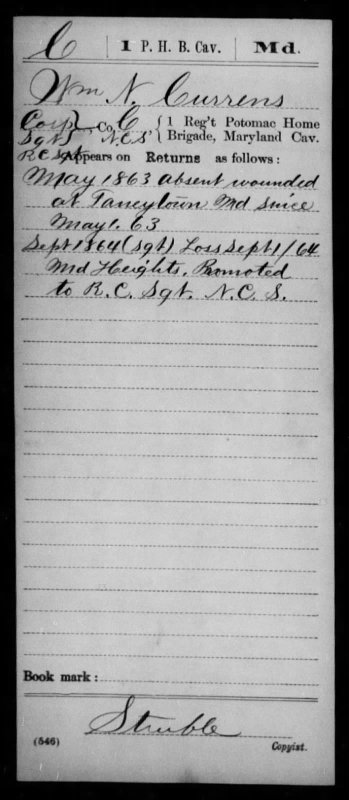 C | 1 P. H. B. Cav. | Md.
Wm N. Currens
Corp }, Co. C, { 1 Reg't Potomac Home
Sgt } N.C.S. { Brigade, Maryland Cav.
R C Sgt Appears on Returns as follows:
May 1863 absent wounded
at Taneytown Md since
May 1. 63
Sept 1864 (Sgt) Loss Sept 1/64
Md Heights, Promoted
to R. C. Sgt. N. C. S.
Book mark:
Struble
(546) Copyist.